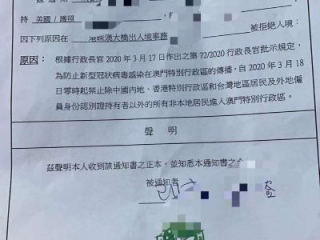 持 美國／護照
因下列原因在 港珠澳大橋出入境事務 被拒絕入境：
原因： 根據行政長官 2020 年 3 月 17 日作出之第 72/2020 行政長官批示規定，
為防止新型冠狀病毒感染在澳門特別行政區的傳播，自 2020 年 3 月 18
日零時起禁止除中國內地、香港特別行政區和台灣地區居民及外地僱
員身份認別證持有者以外的所有非本地居民進入澳門特別行政區。
聲 明
茲聲明本人收到該通知書之正本，並知悉本通知書之
被通知者